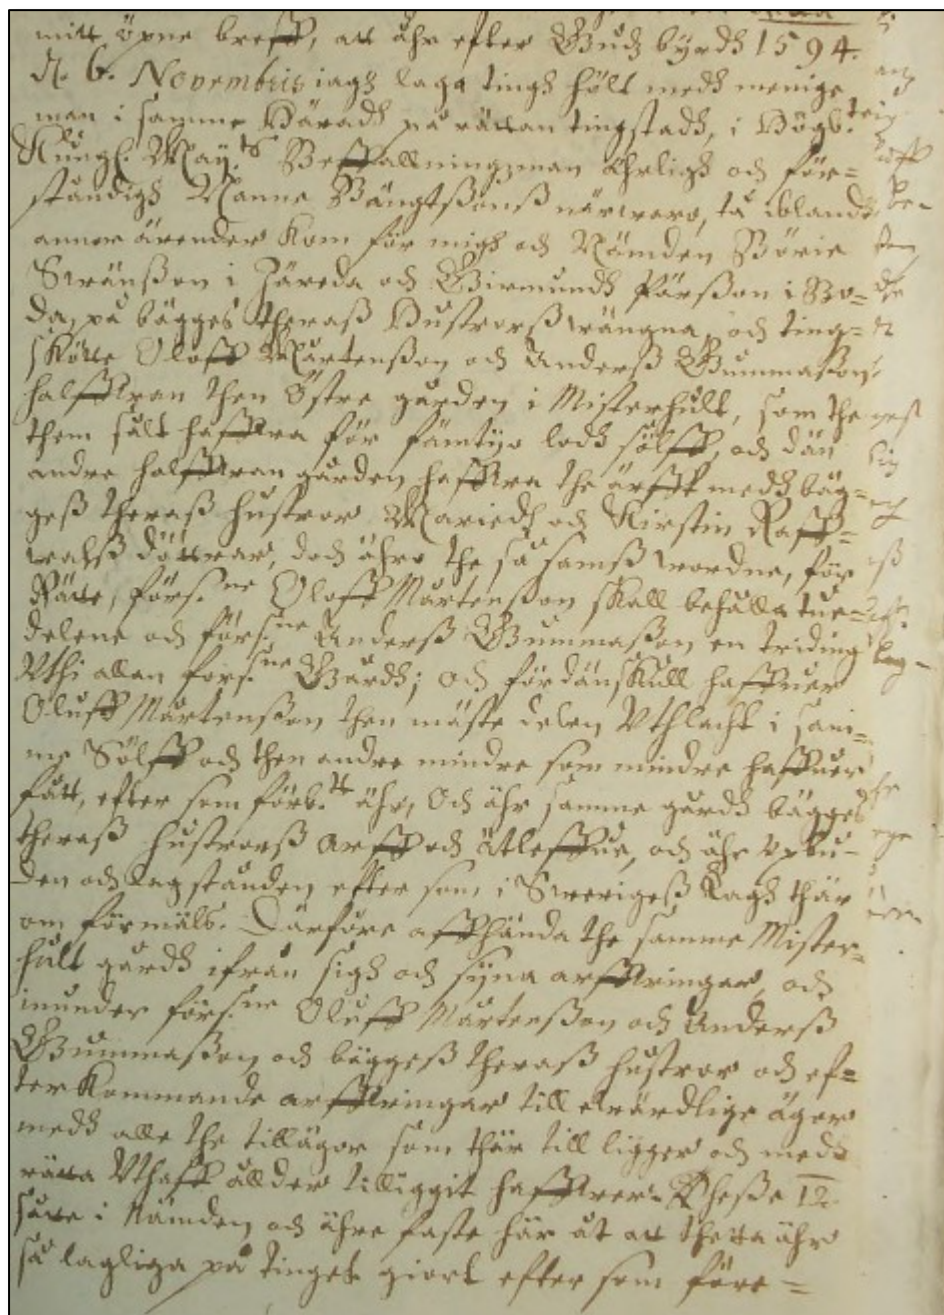 mitt öpne breff, att åhr efter Gudz byrdh 1594.
d. 6. Novembris iagh laga tingh hölt medh menige
man i samme Häradh på rättan tingstadh, i Högb.
Kungl. May.tz Befallningzman ährligh och för=
ståndigh Manne Bängtßonß närwaro, tå iblandh
annor ärender kom för migh och Nämden Börie
Swänßon i Järeda och Girmundh Pärßon i Bo=
da, på bägges theraß Hustrorß wängna, och ting=
skötte Oloff Mårtenßon och Anderß Gummaßon
halffwan then Östre gården i Misterhult, som the
them sålt haffwa för fämtyo lodh sölff, och dän
andre halffwan gården haffwa the ärfft medh bäg=
geß theraß hustror Mariedh och Kirstin Raff=
waldß döttrar, doch ähre the så samß wordne, för
Rätte, förs.ne Oloff Mårtenßon skall behålla twe=
delene och förs.ne Anderß Gummaßon en triding
Uthi allan förs.ne Gardh; och fördänskull haffuer
Oluff Mårtenßon then mäste delen Uthlacht i sam=
me Sölff och then andre mindre som mindre haffuer
fått, efter som förb.tt ähr, Och ähr samme gårdh bägges
theraß hustrorß arff och ätleffue, och ähr upbu=
den och lagstånden effter som i Swerigeß Lagh thär
om förmäls. Därföre affhända the samme Mister=
hult gårdh ifrån sigh och syna arffwingar, och
inunder förs.ne Oluff Mårtenßon och Anderß
Gummaßon och bäggeß theraß hustror och ef=
terkommande arffwingar till ewärdlige ägor
medh alle the tillägor som thär till ligger och medh
rätta Uthaff ållder tilliggit haffwer. Theße 12
såte i Nämden och ähre faste här åt att thetta ähr
så lagliga på tinget giort efter som före=